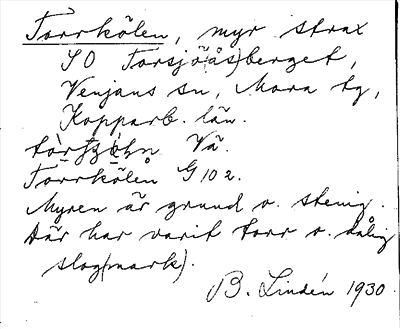 Torrkölen, myr strax
SO Torsjö(ås)berget,
Venjans sn, Mora tg,
Kopparb. län.
Vå.
Torrkölen G 102.
Myren är grund o. stenig.
Där har varit torr o. dålig
slog(mark).
B. Lindén 1930.